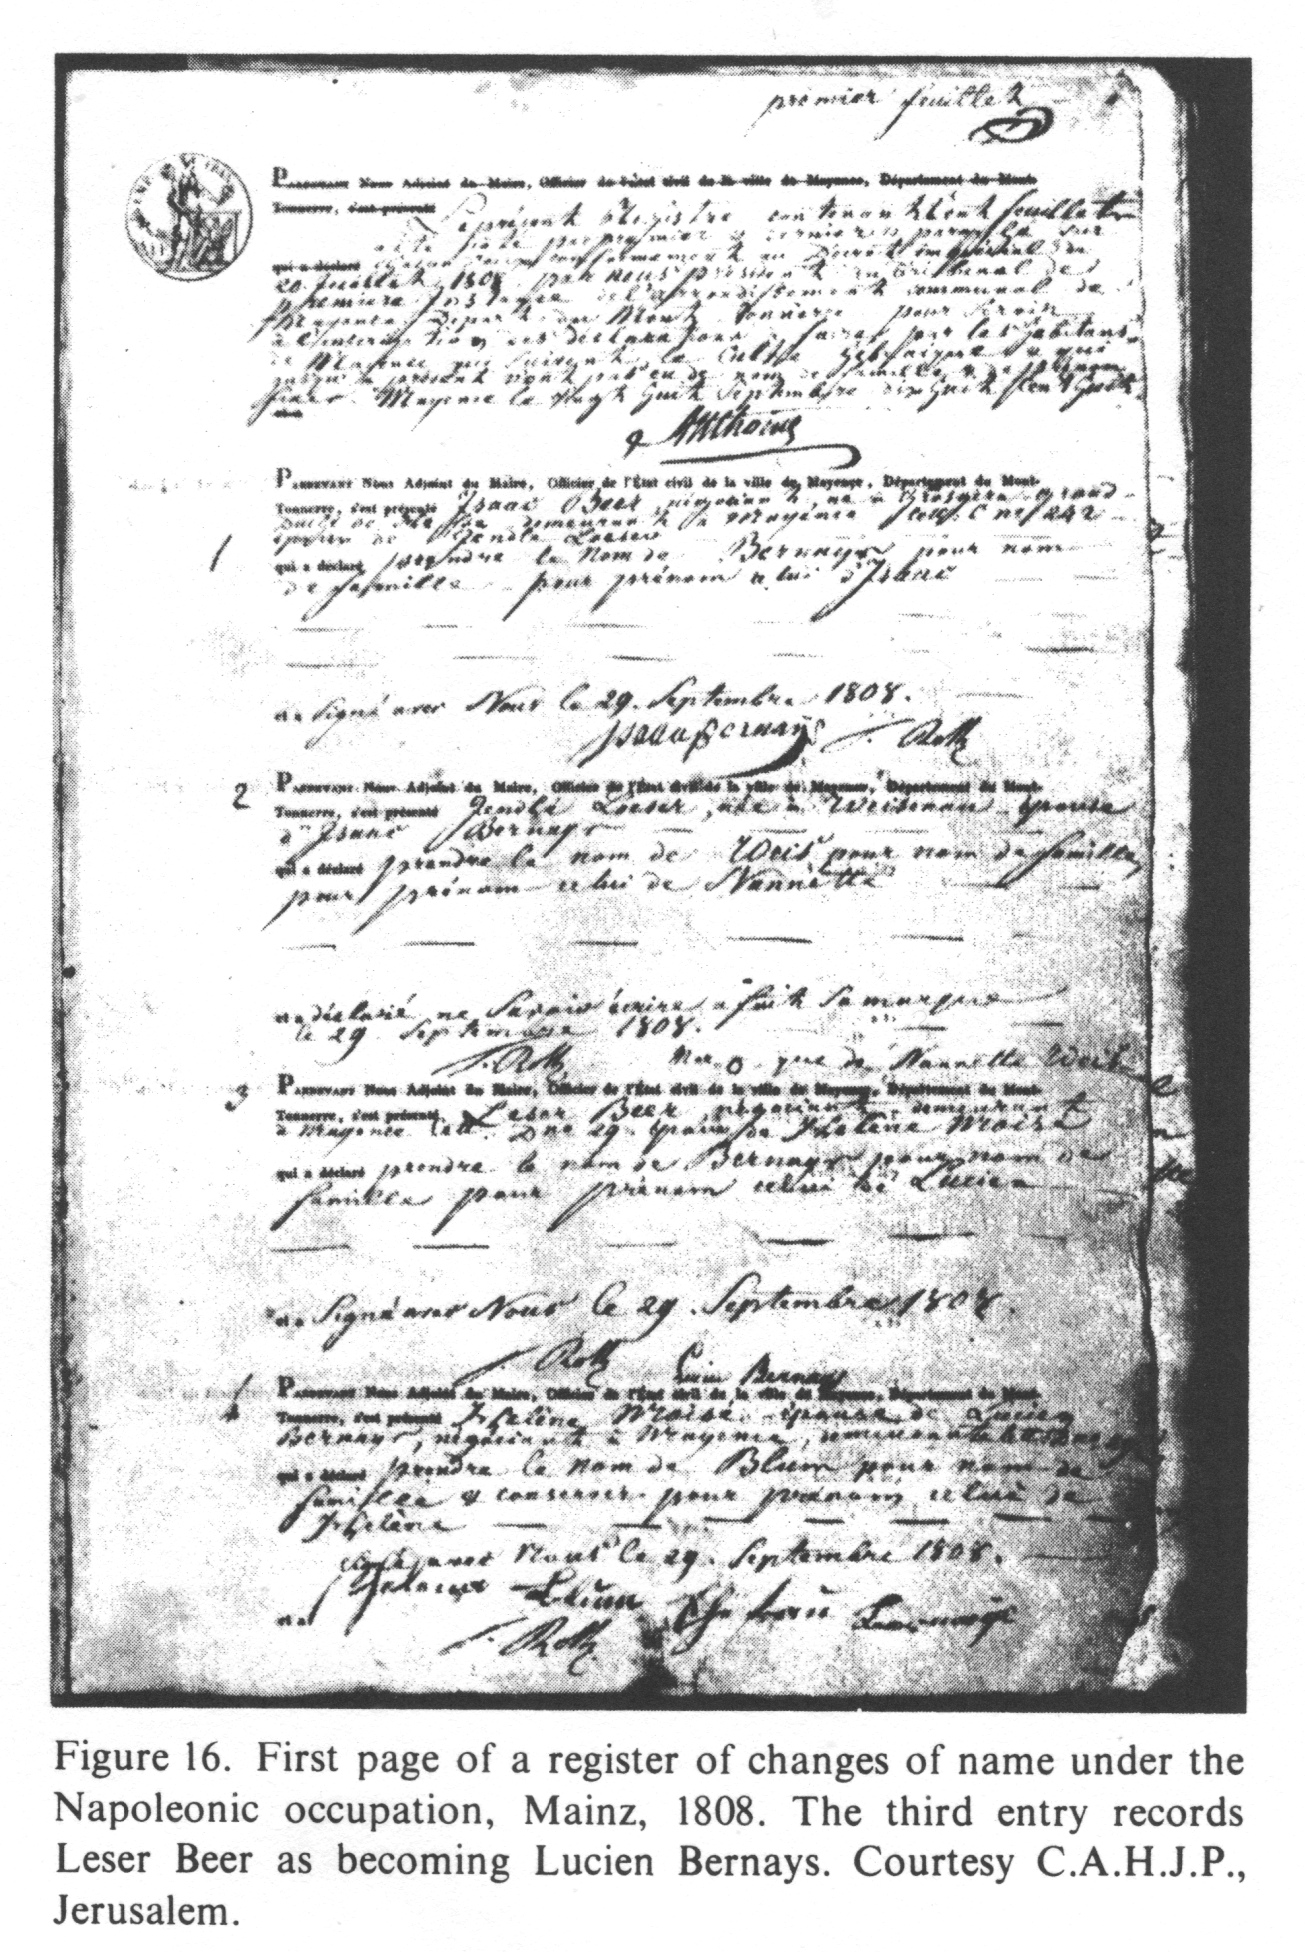 premier feuillet
Pardevant Nous Adjoint du Maire, Officier de l'état civil de la ville de Mayence, Département du Mont-
Tonnerre, s'est présenté
Le présent Registre contenant feuillets
qui a déclaré conformement au Décret impérial du
20 Juillet 1808 par nous président du Tribunal de
premiere Instance de l'arrondissement communal de
Mayence Mont Tonnerre pour servir
des déclarations faites par les habitans
de Mayence qui suivent le Culte hébraique & qui
jusqu'à présent n'ont pas eu de nom de famille & de prénom
Mayence le vingt huit Septembre dix huit cent huit
Pardevant Nous Adjoint du Maire, Officier de l'État civil de la ville de Mayence, Département du Mont-
Tonnerre, s'est présenté Isaac Beer négociant né à Grand
demeurant à Mayence 242
époux de Jendlé Loeser
1 qui a déclaré prendre le Nom de Bernays pour nom
de famille pour prénom celui d'Isaac
et a Signé avec Nous le 29. Septembre 1808.
Isaac Bernays Roth
2 Pardevant Nous Adjoint du Maire, Officier de l'État civil de la ville de Mayence, Département du Mont-
Tonnerre, s'est présenté Jendlé Loeser, née à Weisenau épouse
d'Isaac Bernays
qui a déclaré prendre le nom de Weis pour nom de famille
pour prénom celui de Nannette
et a déclaré ne savoir écrire a fait sa marque
le 29 Septembre 1808.
Roth Mar o que de Nannette Weis
3 Pardevant Nous Adjoint du Maire, Officier de l'État civil de la ville de Mayence, Département du Mont-
Tonnerre, s'est présenté Leser Beer négociant, demeurant
à Mayence Lett. D no 29. époux de Helène Moïse
qui a déclaré prendre le nom de Bernays pour nom de
famille pour prénom celui de Lucien
et a Signé avec Nous le 29. Septembre 1808.
Roth Lucien Bernays
4 Pardevant Nous Adjoint du Maire, Officier de l'État civil de la ville de Mayence, Département du Mont-
Tonnerre, s'est présenté Helène Moïse épouse de Lucien
Bernays, négociant à Mayence, demeurant
qui a déclaré prendre le nom de Blum pour nom de
famille & conserver pour prénom celui de
Helène
Signé avec Nous le 29. Septembre 1808.
Blum
et a Roth
Figure 16. First page of a register of changes of name under the
Napoleonic occupation, Mainz, 1808. The third entry records
Leser Beer as becoming Lucien Bernays. Courtesy C.A.H.J.P.,
Jerusalem.